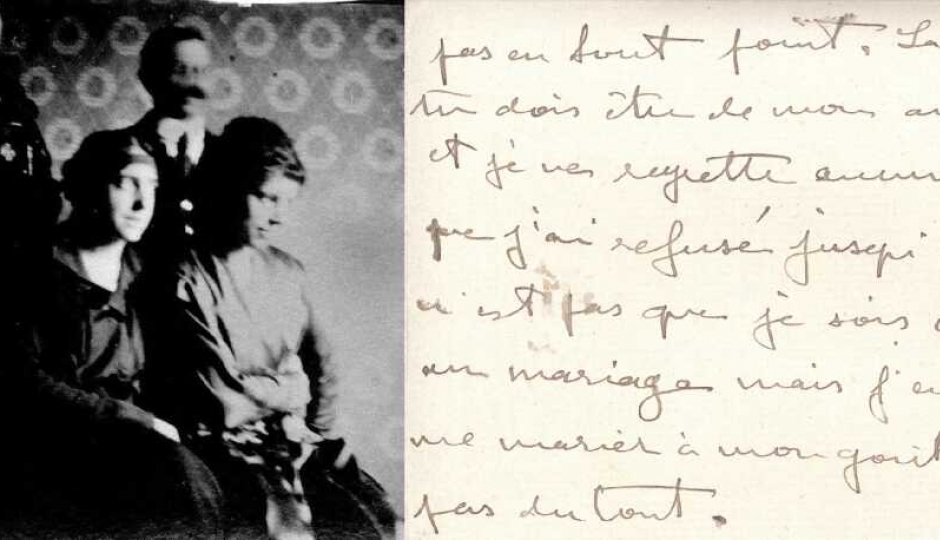 pas en tout point. La
tu dois être de mon a
et je ne regrette aucun
que j'ai refusé jusqu'
n'est pas que je sois
au mariage mais j'en
me marier à mon goût
pas du tout.